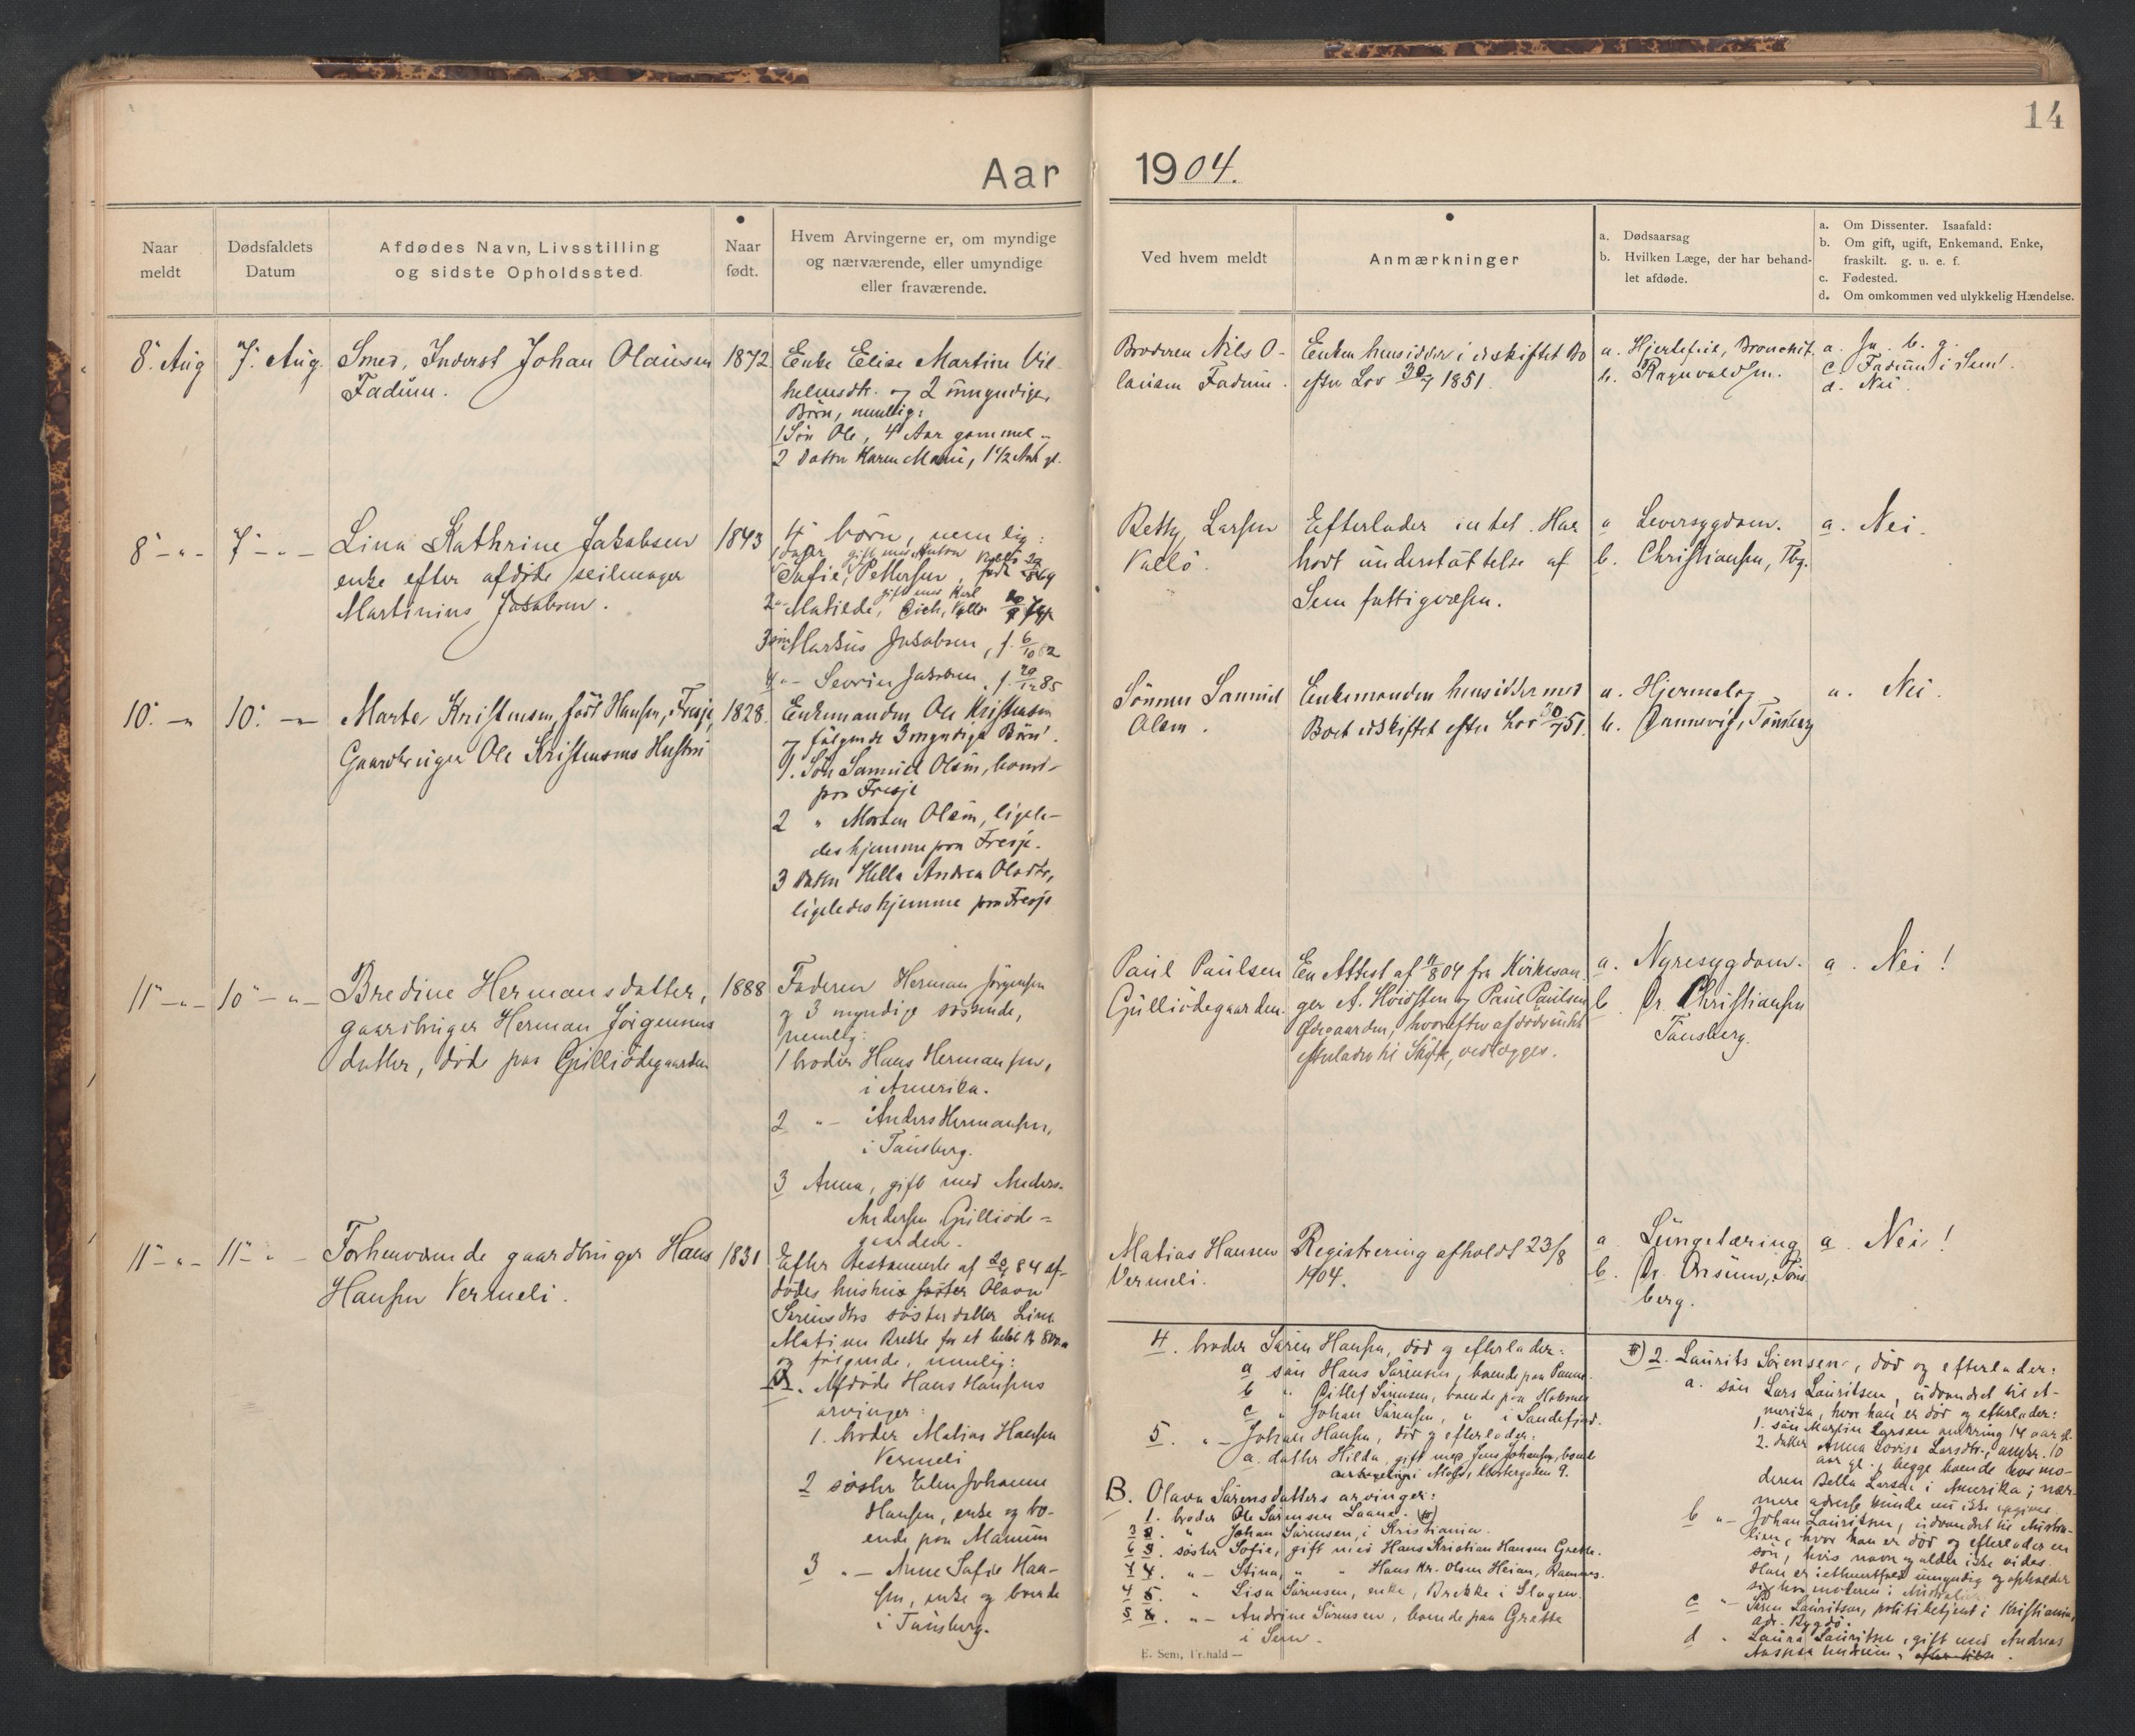 14
Aar 1904.
Naar meldt
Dødsfaldets Datum
Afdødes Navn, Livsstilling og sidste Opholdssted.
Naar født.
Hvem Arvingerne er, om myndige og nærværende, eller umyndige eller fraværende.
Ved hvem meldt
Anmærkninger
a. Dødsaarsag
b. Hvilken Læge, der har behandlet afdøde.
a. Om Dissenter. Isaafald:
b. Om gift, ugift, Enkemand, Enke, fraskilt. g. u. e. f.
c. Fødested.
d. Om omkommen ved ulykkelig Hændelse.
8. Aug
7. Aug.
Smed, Inderst Johan Olausen
Fadum.
1872
Enke Elise Martine Vil-
helmsdtr. og 2 umyndige
Börn, nemlig:
1 Sön Ole, 4 Aar gammel
2 Datter Karen Marie, 1 1/2 Aar gl.
Broderen Nils O-
lausen Fadum.
Enken hensidder i uskiftet Bo
efter Lov 30/7 1851.
a. Hjertefeil, Bronchit.
b. Ragnvaldsen.
a. Ja. b. g.
c. Fadum i Sem.
d. Nei
8 - " -
7 - " -
Lina Kathrine Jakobsen
enke efter afdöde seilmager
Martinius Jakobsen.
1843
4 börn, nemlig:
1 datter gift med Anton Vallö
Sofie, Pettersen, född 29/ 69
2 " Matilde, gift med Karl Eich, Vallö
3 sön Markus Jakobsen, f. 6/10 82
4 " - Severin Jakobsen, f. 20/12 85
Betty Larsen
Vallö.
Efterlader intet. Har
havt understøttelse af
Sem fattigvæsen.
a Leversygdom.
b. Christiansen, Tbg.
a. Nei.
10. - "
10. - "
Marte Kristensen, född Hansen, Fresje,
Gaardbruger Ole Kristensens Hustru
1828.
Enkemanden Ole Kristensen
og fölgende 3 myndige Börn:
1. Sön Samuel Olsen, hjemme
paa Fresje
2 " Morten Olsen, ligele-
des hjemme paa Fresje.
3 Datter Hella Andrea Olsdtr,
ligeledes hjemme paa Fresje
Sönnen Samuel
Olsen.
Enkemanden hensidder med
Boet uskiftet efter Lov 30/7 51.
a. Hjerneslag
b. Tönsberg
a. Nei.
11 - " -
10 - " -
Bredine Hermansdatter,
gaardbruger Herman Jörgensens
datter, död paa Gulliödegaarden
1888
Faderen Herman Jörgensen
og 3 myndige söskende,
nemlig:
1 broder Hans Hermansen,
i Amerika.
2 " - Anders Hermansen,
i Tönsberg.
3 Anna, gift med Anders
Andersen Gulliöde-
gaarden.
Paul Paulsen
Gulliödegaarden.
En Attest af 11/8 04 fra Kirkesan-
ger A. Høidsten og Paul Paulsen
Ødegaarden, hvorefter afdøde intet
efterlader til Skifte, vedlægges.
a. Nyresygdom.
b Dr. Christiansen
Tönsberg.
a. Nei!
11 - " -
11 - " -
Forhenværende gaardbruger Hans
Hansen Vermeli.
1831
Efter testamente af 84 af-
dödes hustru Olava
Sörensdtrs sösterdatter Lina
Matine Brekke for et belöb Kr 800
og fölgende, nemlig:
A. Afdöde Hans Hansens
arvinger:
1. broder Matias Hansen
Vermeli
2 söster Elen Johanne
Hansen, enke og bo-
ende paa Manum
3 " - Anne Sofie Han-
sen, enke og boende
i Tönsberg.
Matias Hansen
Vermeli.
Registrering afholdt 23/8
1904.
a Lungetæring
b. Dr. Töns
berg.
a. Nei!
4. broder Sören Hansen, död og efterlader:
a sön Hans Sörensen, boende paa
b " Ditlef Sörensen, boende paa
c " Johan Sörensen, " i Sandefjord.
5. " - Johan Hansen, död og efterlader:
a. datter Hilda, gift med Jens Johansen, boende
i Moss, Klostergaden 9.
B. Olava Sörensdatters arvinger:
1. broder Ole Sörensen
" Johan Sörensen, i Kristiania.
söster Sofie, gift med Hans Kristian Hansen Grette.
" - Stina, " " Hans Kr. Olsen Heian, Ramnes.
" Lisa Sörensen, enke, Brekke i Slagen.
" - Andrine Sörensen, boende paa Grette
i Sem.
#) 2. Laurits Sörensen, död og efterlader:
a. sön Lars Lauritsen, udvandret til A-
merika, hvor han er död og efterlader:
1. sön Martin Larsen omkring 14 aar gl.
2. datter Anna Lovise Larsdtr., omkr. 10
aar gl., begge boende hos mo-
deren Bella Larsen i Amerika; nær-
mere adresse kunde nu ikke opgives.
b " - Johan Lauritsen, udvandret til Austra-
lien, hvor han er död og efterlader en
sön, hvis navn og alder ikke vides.
Han er umyndig og opholder
sig hos moderen i Australien.
c " - Sören Lauritsen, politibetjent i Kristiania,
adr. Bygdö.
d " Laura Lauritsen, gift med Andreas
E. Sem, Fr.hald —